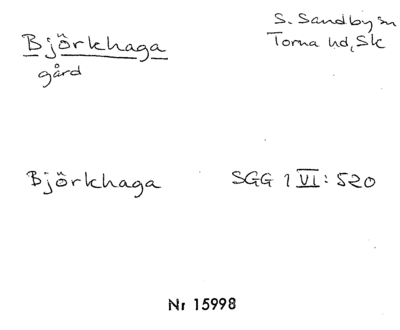 Björkhaga
gård
S. Sandby sn
Torna hd, Sk
Björkhaga
SGG 1 VI: 520
Nr 15998